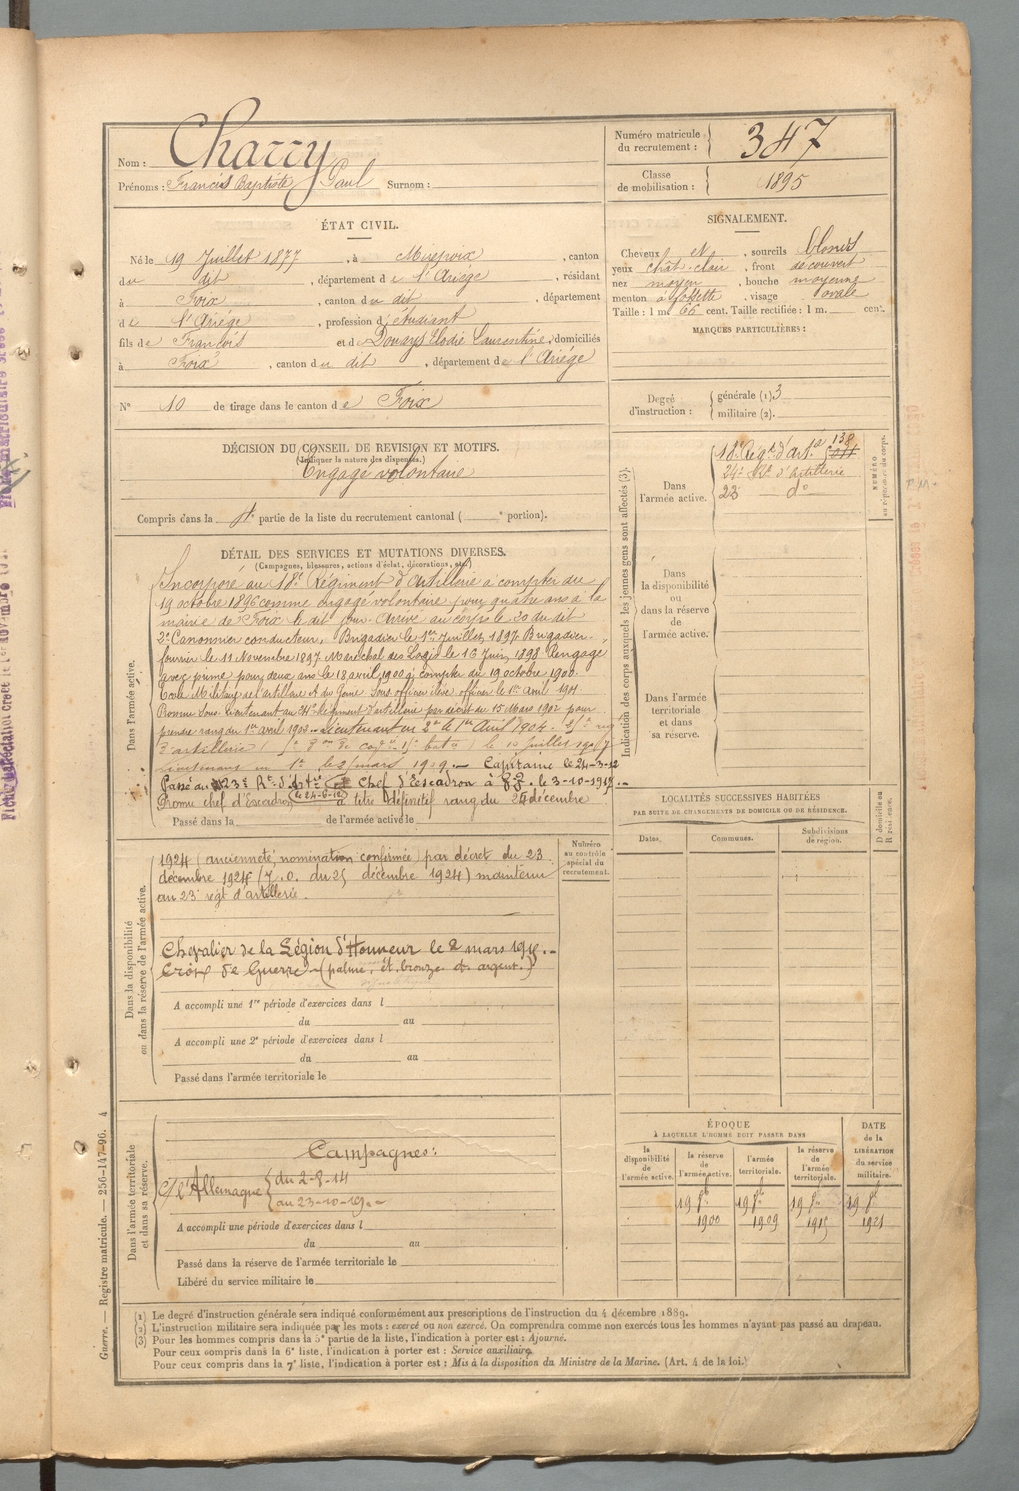 Nom : Charry
Prénoms : Francis Baptiste Paul Surnom :
Numéro matricule du recrutement : 347
Classe de mobilisation : 1895
ÉTAT CIVIL.
Né le 19 Juillet 1877, à Mirepoix, canton
du dit, département de l'Ariège, résidant
à Foix, canton du dit, département
de l'Ariége, profession d'étudiant
fils de François et de Douays Elodie Laurentine, domiciliés
à Foix, canton du dit, département de l'Ariége
N° 10 de tirage dans le canton de Foix
SIGNALEMENT.
Cheveux et sourcils blonds
yeux chât. clair, front découvert
nez moyen, bouche moyenne
menton à fossette, visage ovale
Taille : 1 m 66 cent. Taille rectifiée : 1 m. cent.
MARQUES PARTICULIÈRES :
Degré d'instruction : générale (1). 3
militaire (2).
DÉCISION DU CONSEIL DE REVISION ET MOTIFS.
(Indiquer la nature des dispenses.)
Engagé volontaire
Compris dans la partie de la liste du recrutement cantonal ( portion).
Indication des corps auxquels les jeunes gens sont affectés (3).
Dans l'armée active.
18e Rég.t d'Art.ie 138
24e Rt d'Artillerie
23 do
NUMÉRO au répertoire du corps.
Dans la disponibilité ou dans la réserve de l'armée active.
Dans l'armée territoriale et dans sa réserve.
DÉTAIL DES SERVICES ET MUTATIONS DIVERSES.
(Campagnes, blessures, actions d'éclat, décorations, etc.)
Dans l'armée active.
Incorporé au 18e Régiment d'Artillerie à compter du
19 octobre 1896 comme engagé volontaire pour quatre ans à la
mairie de Foix le dit jour. Arrivé au corps le 20 du dit
2e Canonnier conducteur, Brigadier le 1er Juillet 1897. Brigadier
fourrier le 11 Novembre 1897. Maréchal des Logis le 16 Juin 1898. Rengagé
avec prime pour deux ans le 18 avril 1900 à compter du 19 octobre 1900.
Ecole Militaire de l'artillerie et du Génie Sous officier élève officier le 1er avril 1901
Promu Sous-lieutenant au Régiment d'artillerie par décret du 15 Mars 1902 pour
prendre rang du 1er avril 1902. Lieutenant en 2e le 1er Avril 1904.
d'artillerie le 10 juillet
Lieutenant en 1er le mars Capitaine le 24-3-12
Passé au 23e Rt. d'Artie Chef d'Escadron à le 3-10-1917
(le 24-6-12)
Promu chef d'Escadron à titre définitif rang du 25 décembre
Passé dans la de l'armée active le
Dans la disponibilité ou dans la réserve de l'armée active.
1924 (ancienneté, nomination confirmée) par décret du 23
décembre 1924 (J.O. du 25 décembre 1924) maintenu
au 23e régt d'artillerie.
Chevalier de la Légion d'Honneur le 2 mars
Croix de Guerre (palme, ét. bronze et argent.)
A accompli une 1re période d'exercices dans l
du au
A accompli une 2e période d'exercices dans l
du au
Passé dans l'armée territoriale le
Numéro au contrôle spécial du recrutement.
LOCALITÉS SUCCESSIVES HABITÉES
PAR SUITE DE CHANGEMENTS DE DOMICILE OU DE RÉSIDENCE.
Dates. Communes. Subdivisions de région. D domicile ou R résidence.
Dans l'armée territoriale et dans sa réserve.
Campagnes:
c/ l'Allemagne du 2-8-14
au 23-10-19
A accompli une période d'exercices dans l
du au
Passé dans la réserve de l'armée territoriale le
Libéré du service militaire le
ÉPOQUE
À LAQUELLE L'HOMME DOIT PASSER DANS
la disponibilité de l'armée active. la réserve de l'armée active. l'armée territoriale. la réserve de l'armée territoriale. DATE de la LIBÉRATION du service militaire.
19 8bre 19 8bre 19 8bre 19 8bre
1900 1909 1915 1921
(1) Le degré d'instruction générale sera indiqué conformément aux prescriptions de l'instruction du 4 décembre 1889.
(2) L'instruction militaire sera indiquée par les mots : exercé ou non exercé. On comprendra comme non exercés tous les hommes n'ayant pas passé au drapeau.
(3) Pour les hommes compris dans la 5e partie de la liste, l'indication à porter est : Ajourné.
Pour ceux compris dans la 6e liste, l'indication à porter est : Service auxiliaire.
Pour ceux compris dans la 7e liste, l'indication à porter est : Mis à la disposition du Ministre de la Marine. (Art. 4 de la loi.)
Guerre. — Registre matricule. — 256-147-96. 4